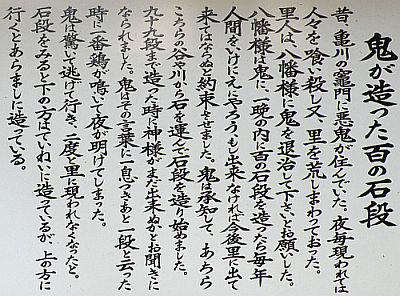 鬼が造った百の石段
昔、亀川の竈門に悪鬼が住んでいた。夜毎現われは
人々を喰い殺し又、里を荒しまわっておった。
里人は、八幡様に鬼を退治して下さいとお願いした。
八幡様は鬼に、一晩の内に百の石段を造ったら毎年
人間をいけにえにやろう、もし出来なければ今後里に出て
来てはならぬと約束をさせました。鬼は承知して、あちら
こちらの谷や川から石を運んで石段を造り始めました。
九十九段まで造った時に神様がまだ出来ぬかとお聞きに
なられました。鬼はその言葉に一息つきあと一段と云った
時に一番鶏が鳴いて夜が明けてしまった。
鬼は驚いて逃げて行き、二度と里に現われなくなったと。
石段をみると下の方はていねいに造っているが、上の方に
行くとあらましに造っている。